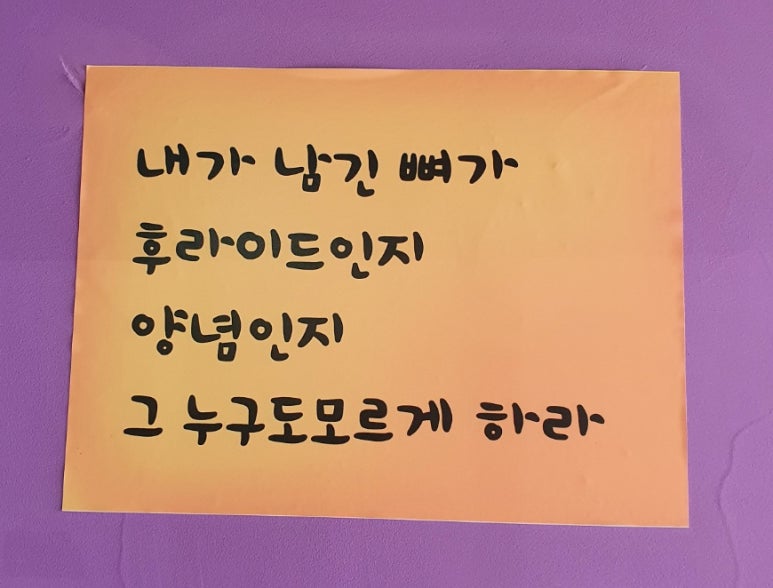 내가 남긴 뼈가
후라이드인지
양념인지
그 누구도모르게 하라